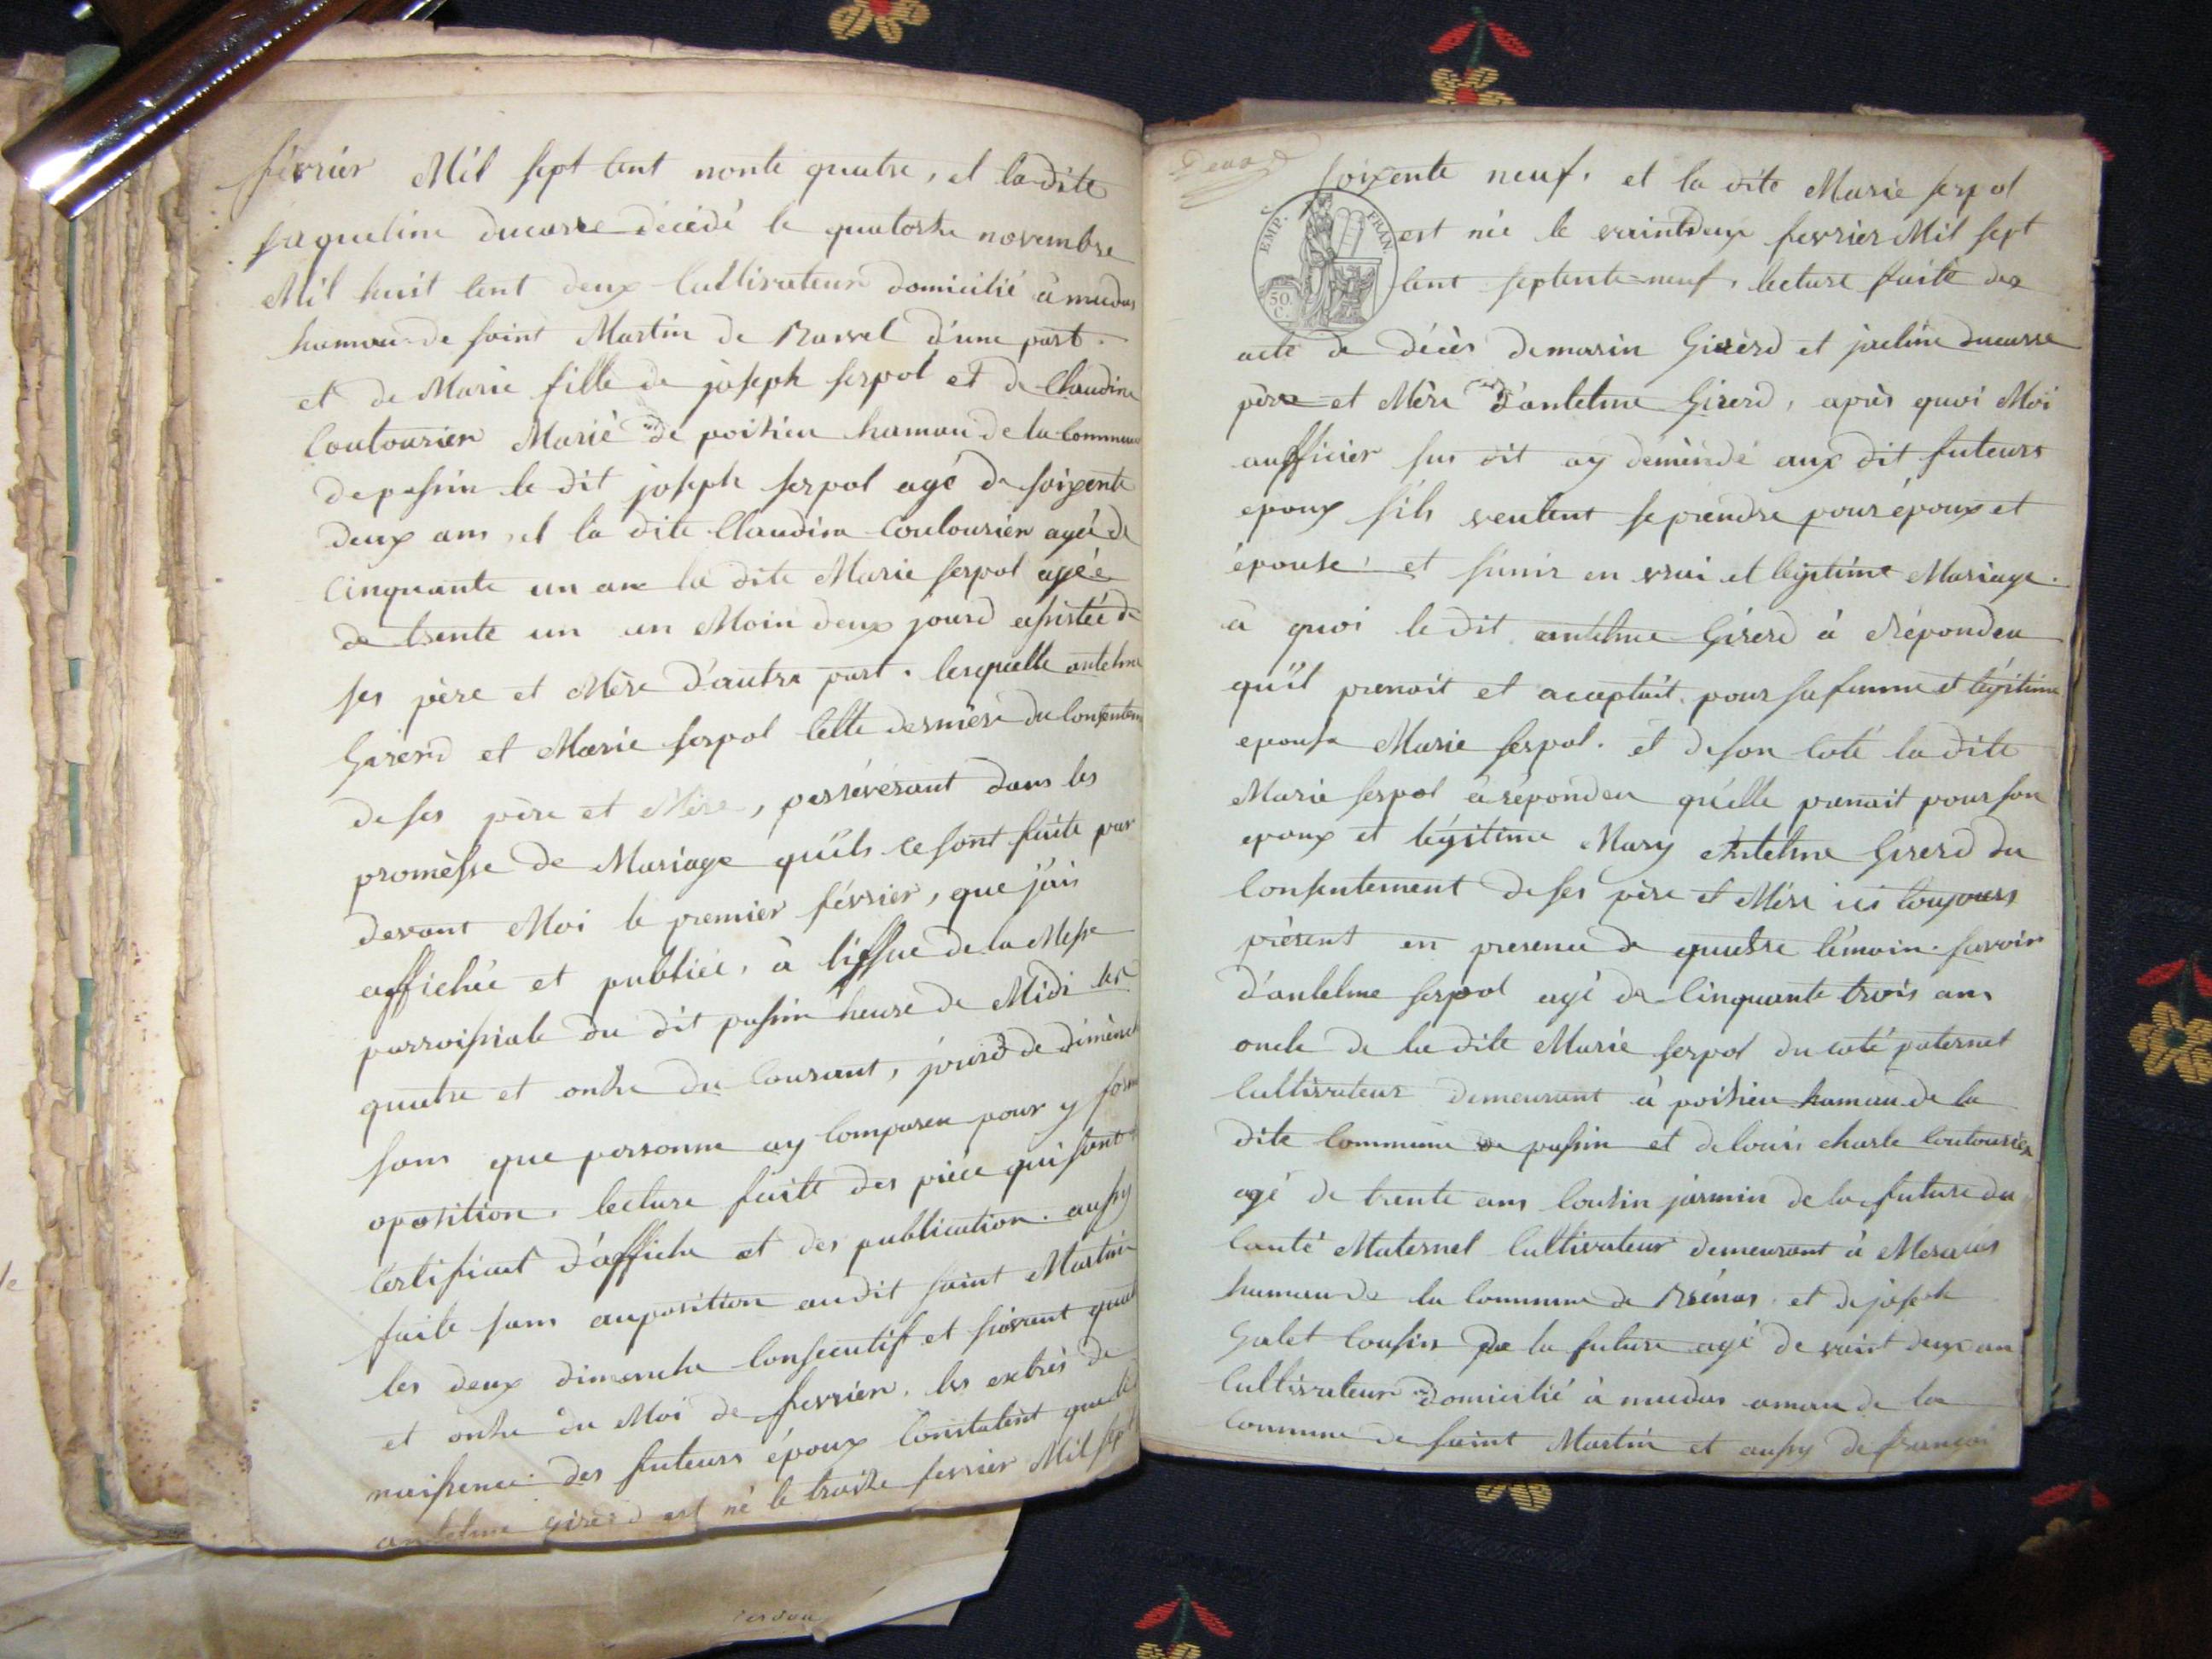 février Mil sept cent nonte quatre, et la dite
jaqueline ducarre décédé le quatorze novembre
Mil huit cent deux Cultivateur domicilié à muedas
hamau de saint Martin de Bavel d'une part.
et de Marie fille de joseph serpol et de Claudine
Coutourier Marié de poisieu hamau de la Commune
de passin le dit joseph serpol agé de soixente
deux ans, et la dite Claudine Coutourier agée de
Cinquante un ans la dite Marie serpol agée
de trente un an Moin deux jourd assistée de
ses père et Mère d'autre part. lesquelle antelme
Girerd et Marie serpol Cette dernière du consentem
de ses père et Mère, persévérant dans les
promèsse de Mariage qu'ils ce sont faite par
devant Moi le premier février, que j'ais
affichée et publiée, à l'issue de la Messe
parroissiale du dit passin heure de Midi les
quatre et onze du Courant, jourd de dimènch
sans que personne ay Comparen pour y form
oposition. lecture faite des pièce qui sont
Certificat d'affiche et des publication. aussy
faite sans auposition audit saint Martin
les deux dimenche Consecutif et suivant quat
et onze du Moi de fevrier. les extrès de
naissence des futeurs époux Constatent que le
antelme girerd est né le traize fevrier Mil sept
Deux
soixente neuf. et la dite Marie serpol
EMP. FRAN.
50 C.
est née le vaintdeux fevrier Mil sept
Cent septente-neuf, lecture faite des
acte de décès de marin Girerd et jacline ducarre
père et Mère d'antelme Girerd, après quoi Moi
aufficier sus dit ay demendé aux dit futeurs
epoux s'ils veulent se prendre pour époux et
épouse, et s'unir en vrai et legitime Mariage.
à quoi le dit antelme Girerd à Répondeu
qu'il prenoit et acceptait pour sa femme et légitime
epouse Marie serpol. et de son Coté la dite
Marie serpol à répondeu qu'elle prenait pour son
epoux et légitime Mary Antelme Girerd du
Consentement de ses père et Mère ici toujours
présent en presence de quatre témoin. savoir
d'antelme serpol agé de Cinquante trois ans
oncle de la dite Marie serpol du coté paternel
Cultivateur demeurant à poisieu hamau de la
dite Commune de passin et de louis charle Coutourier
agé de trente ans Cousin jermin de la future du
Cauté Maternel Cultivateur demeurant à
hamau de la Commune de Brénas et de joseph
Galet Cousin de la future agé de vaint deux an
Cultivateur domicilié à muedas amau de la
Commune de saint Martin et aussy de françoi